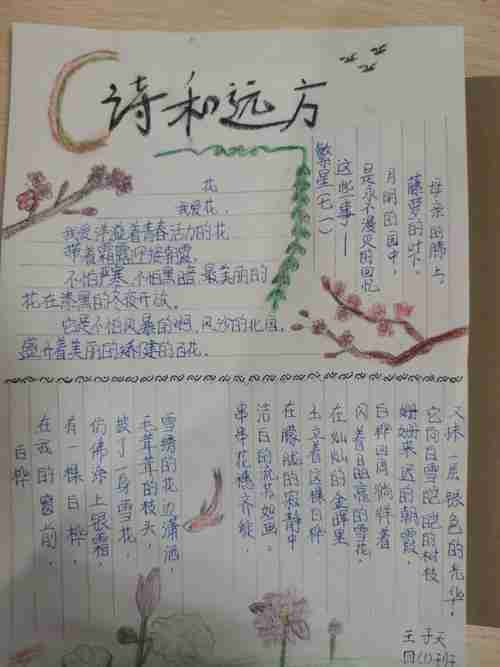 诗和远方
花
我爱花，
我爱洋溢着青春活力的花
带着霜露迎接朝霞。
不怕严寒，不怕黑暗，最美丽的
花在漆黑的冬夜开放。
它是不怕风暴的啊，风沙的北国，
盛开着美丽的矫健的百花。
繁星（七一）
这些事——
是永不漫灭的回忆
月明的园中，
藤萝的叶下，
母亲的膝上。
白桦
在我的窗前，
有一棵白桦，
仿佛涂上银霜，
披了一身雪花，
毛茸茸的枝头，
雪绣的花边潇洒，
串串花穗齐绽，
洁白的流苏如画。
在朦胧的寂静中
玉立着这棵白桦
在灿灿的金晖里
闪着晶亮的雪花，
白桦四周徜徉着
姗姗来迟的朝霞，
它向白雪皑皑的树枝
又抹一层银色的光华。
王子天
四(1)班